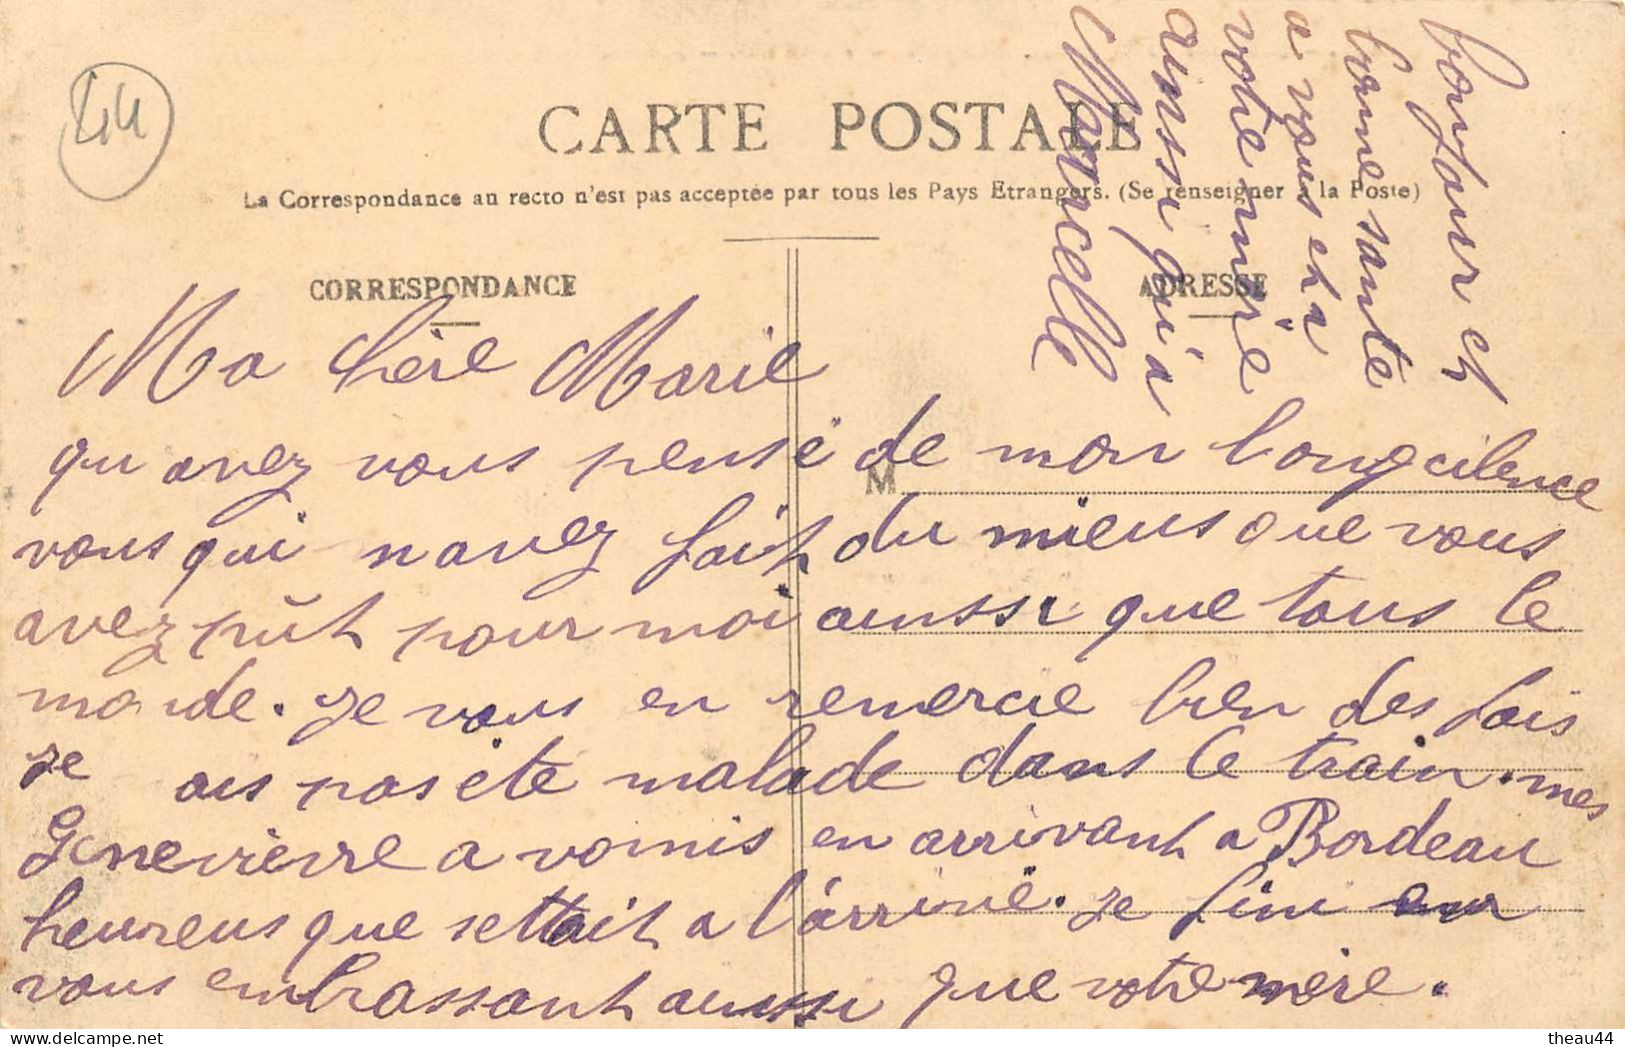 44
CARTE POSTALE
La Correspondance au recto n'est pas acceptée par tous les Pays Etrangers. (Se renseigner à la Poste)
CORRESPONDANCE
ADRESSE
M
Ma chère Marie
qu avez vous pensé de mon long cilence
vous qui navez fait du mieus que vous
avez pût pour moi aussi que tous le
monde. Je vous en remercie bien des fois
je ais pas été malade dans le train. mes
Genevieve a vomis en arrivant a Bordeau
heureus que settait a l'arrivé. Je fini en
vous embrassant aussi que votre mère.
bonjour et
bonne santé
a vous et a
votre mère
aussi qui a
Marcelle
theau44